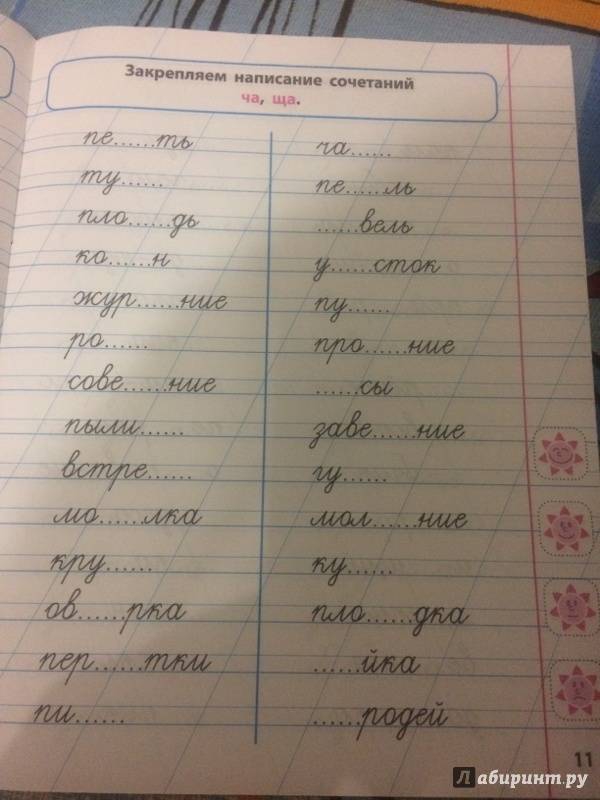 Закрепляем написание сочетаний
ча, ща.
пе......ть
ту......
пло......дь
ко......н
жур......ние
ро......
сове......ние
пыли......
встре......
мо......лка
кру......
ов......рка
пер......тки
пи......
ча......
пе......ль
......вель
у......сток
пу......
про......ние
......сы
заве......ние
гу......
мол......ние
ку......
пло......дка
......йка
......родей
11
Лабиринт.ру